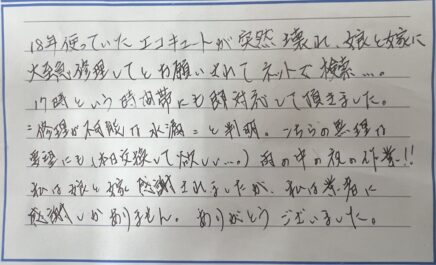 18年使っていたエコキュートが突然壊れ、娘と嫁に
大至急修理してとお願いされてネットで検索…。
17時という時間帯にも即対応して頂きました。
修理が不可能な水漏れと判明。こちらの無理な
要望にも(本体交換して欲しい…)雨の中の夜の作業!!
私は娘と嫁に感謝されましたが、私は業者に
感謝しかありません。ありがとうございました。